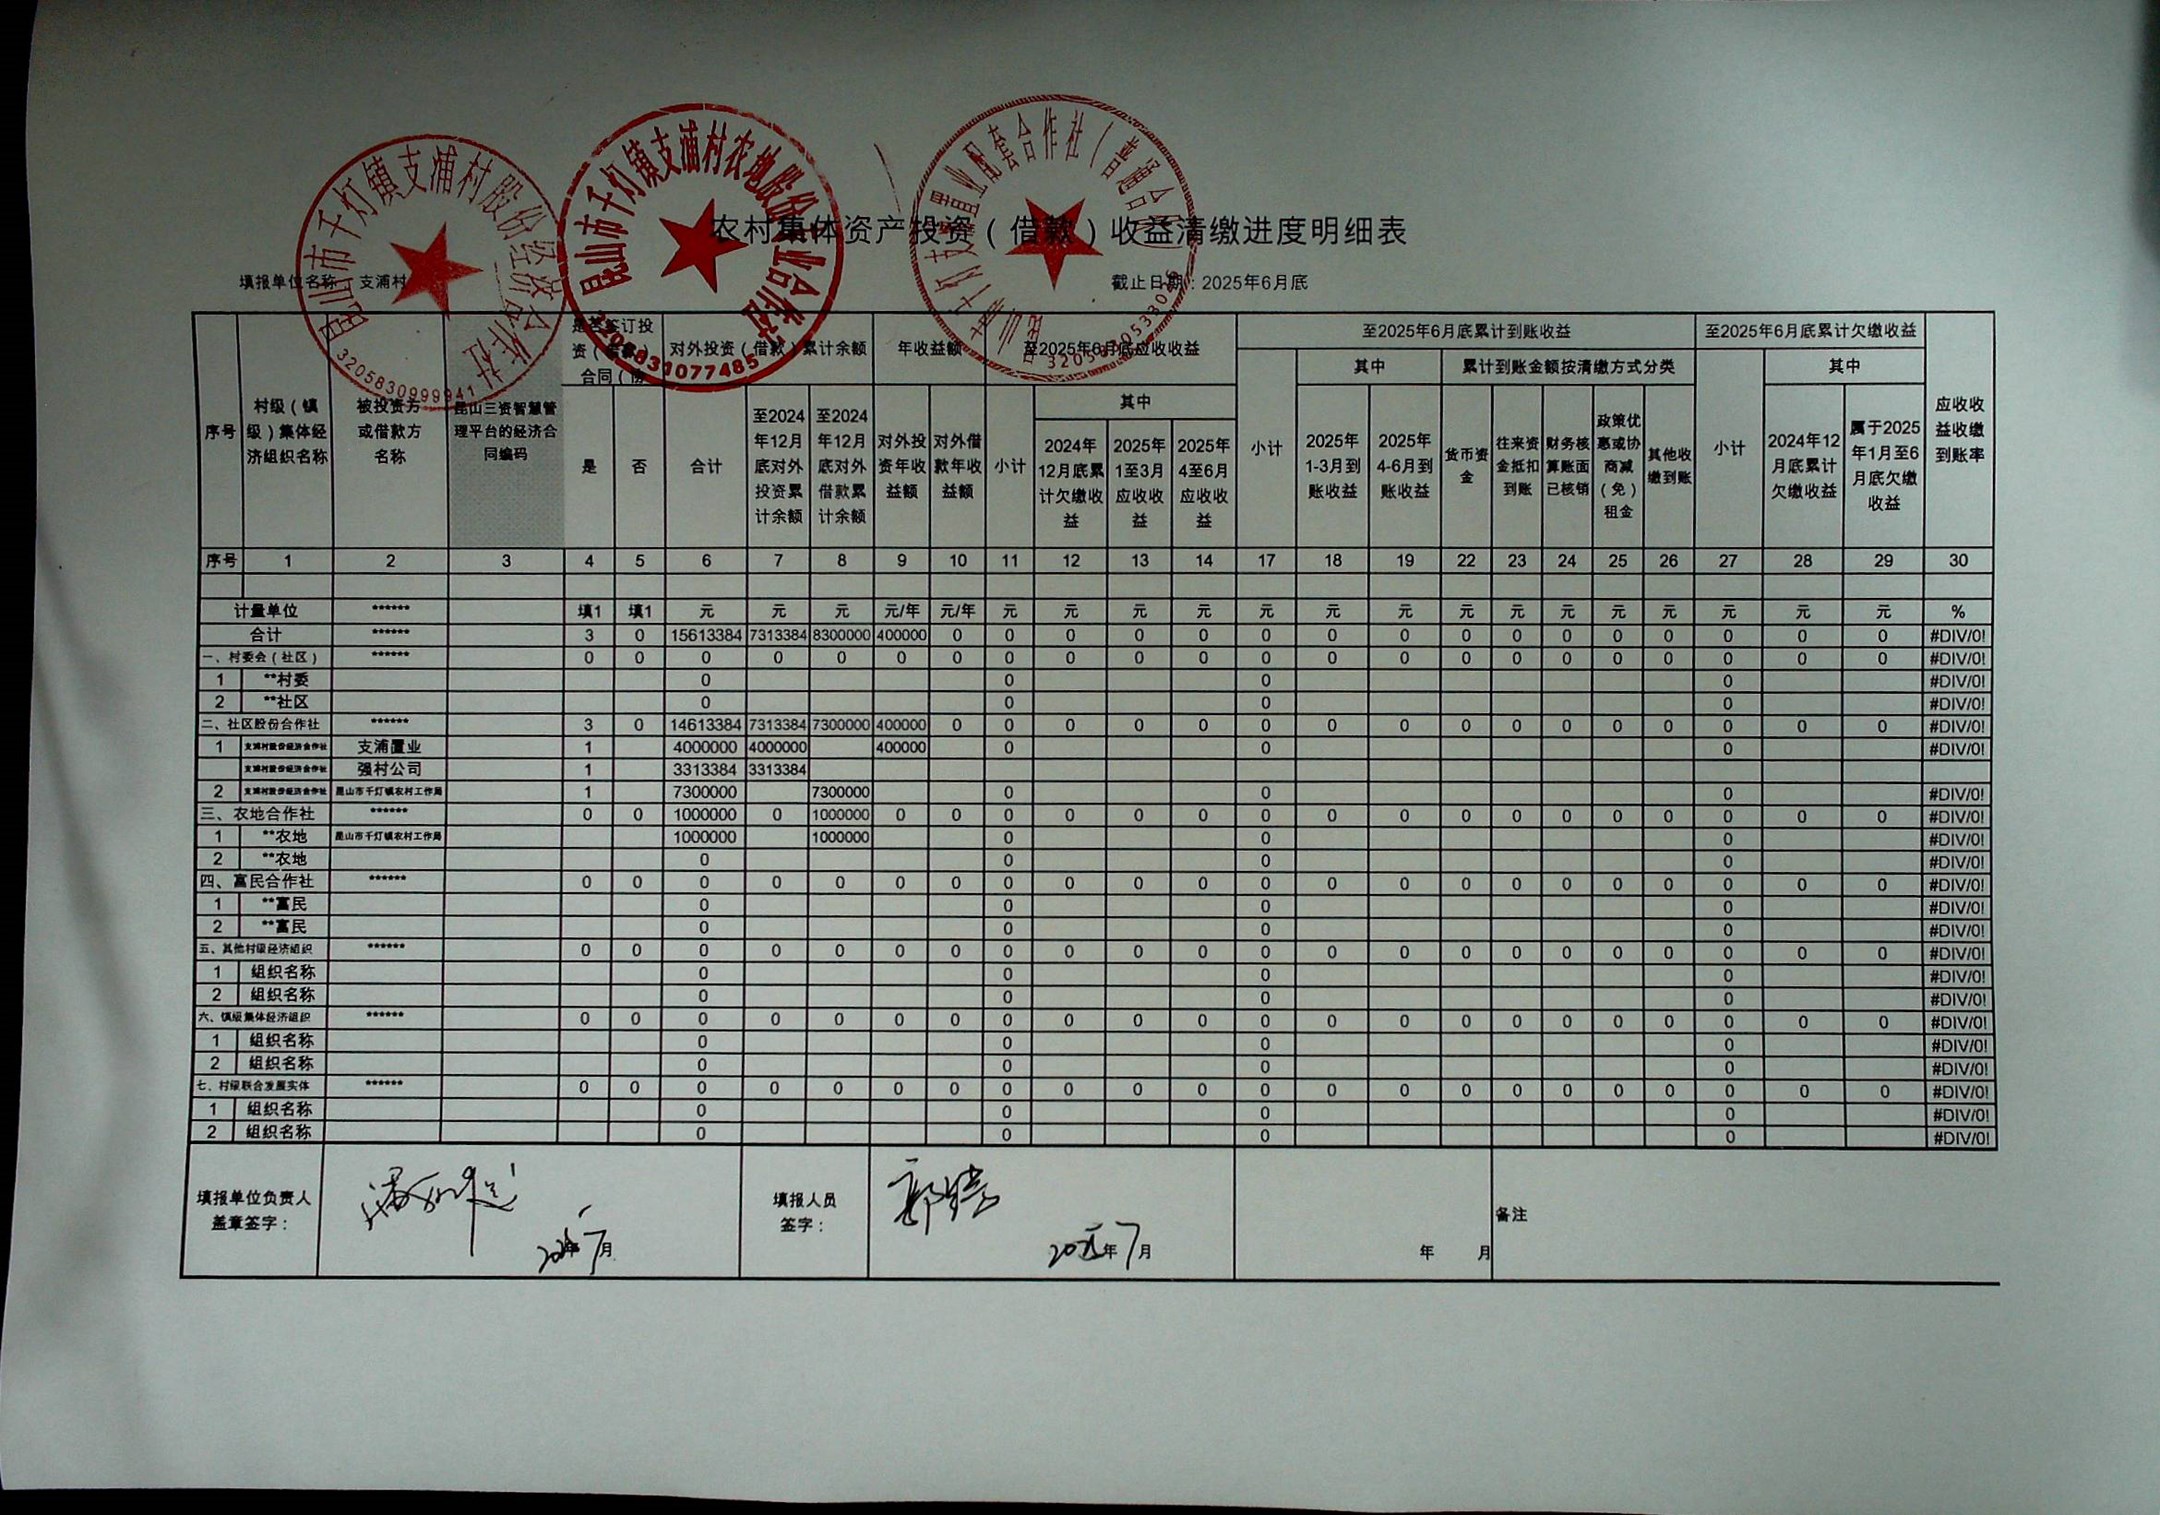 农村集体资产投资（借款）收益清缴进度明细表
填报单位名称： 支浦村
截止日期：2025年6月底
昆山市千灯镇支浦村股份经济合作社
3205830999941
昆山市千灯镇支浦村农地股份 业合作社
3205831077485
千灯支 置业配套合作社（普通合
序号 村级（镇级）集体经济组织名称 被投资方或借款方名称 昆山三资智慧管理平台的经济合同编码 是否签订投资（借款）合同（协 对外投资（借款）累计余额 年收益额 至2025年6月底应收收益 至2025年6月底累计到账收益 至2025年6月底累计欠缴收益 应收收益收缴到账率
其中 其中 累计到账金额按清缴方式分类 其中
是 否 合计 至2024年12月底对外投资累计余额 至2024年12月底对外借款累计余额 对外投资年收益额 对外借款年收益额 小计 2024年12月底累计欠缴收益 2025年1至3月应收收益 2025年4至6月应收收益 小计 2025年1-3月到账收益 2025年4-6月到账收益 货币资金 往来资金抵扣到账 财务核算账面已核销 政策优惠或协商减（免）租金 其他收缴到账 小计 2024年12月底累计欠缴收益 属于2025年1月至6月底欠缴收益
序号 1 2 3 4 5 6 7 8 9 10 11 12 13 14 17 18 19 22 23 24 25 26 27 28 29 30
计量单位 ****** 填1 填1 元 元 元 元/年 元/年 元 元 元 元 元 元 元 元 元 元 元 元 元 元 元 %
合计 ****** 3 0 15613384 7313384 8300000 400000 0 0 0 0 0 0 0 0 0 0 0 0 0 0 0 0 #DIV/0!
一、村委会（社区） ****** 0 0 0 0 0 0 0 0 0 0 0 0 0 0 0 0 0 0 0 0 0 0 #DIV/0!
1 **村委 0 0 0 0 #DIV/0!
2 **社区 0 0 0 0 #DIV/0!
二、社区股份合作社 ****** 3 0 14613384 7313384 7300000 400000 0 0 0 0 0 0 0 0 0 0 0 0 0 0 0 0 #DIV/0!
1 支浦村股份经济合作社 支浦置业 1 4000000 4000000 400000 0 0 0 #DIV/0!
支浦村股份经济合作社 强村公司 1 3313384 3313384
2 支浦村股份经济合作社 昆山市千灯镇农村工作局 1 7300000 7300000 0 0 0 #DIV/0!
三、农地合作社 ****** 0 0 1000000 0 1000000 0 0 0 0 0 0 0 0 0 0 0 0 0 0 0 0 0 #DIV/0!
1 **农地 昆山市千灯镇农村工作局 1000000 1000000 0 0 0 #DIV/0!
2 **农地 0 0 0 0 #DIV/0!
四、富民合作社 ****** 0 0 0 0 0 0 0 0 0 0 0 0 0 0 0 0 0 0 0 0 0 0 #DIV/0!
1 **富民 0 0 0 0 #DIV/0!
2 **富民 0 0 0 0 #DIV/0!
五、其他村级经济组织 ****** 0 0 0 0 0 0 0 0 0 0 0 0 0 0 0 0 0 0 0 0 0 0 #DIV/0!
1 组织名称 0 0 0 0 #DIV/0!
2 组织名称 0 0 0 0 #DIV/0!
六、镇级集体经济组织 ****** 0 0 0 0 0 0 0 0 0 0 0 0 0 0 0 0 0 0 0 0 0 0 #DIV/0!
1 组织名称 0 0 0 0 #DIV/0!
2 组织名称 0 0 0 0 #DIV/0!
七、村级联合发展实体 ****** 0 0 0 0 0 0 0 0 0 0 0 0 0 0 0 0 0 0 0 0 0 0 #DIV/0!
1 组织名称 0 0 0 0 #DIV/0!
2 组织名称 0 0 0 0 #DIV/0!
填报单位负责人盖章签字： 2025年7月 填报人员签字： 2025年7月 年 月 备注